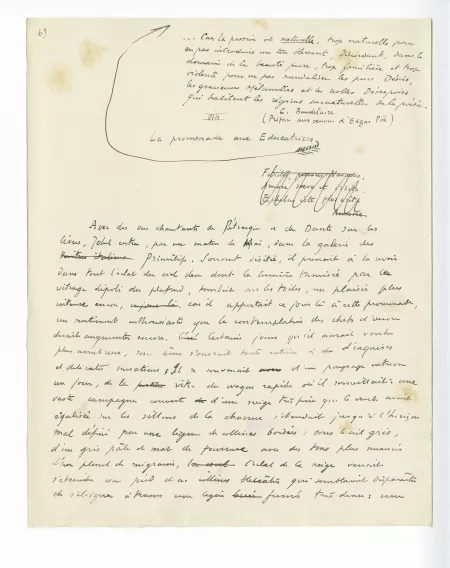 69
... Car la passion est naturelle, trop naturelle pour
ne pas introduire un ton blessant, discordant, dans le
domaine de la beauté pure, trop familière et trop
violente pour ne pas scandaliser les purs Désirs,
les gracieuses Mélancolies et les nobles Désespoirs
qui habitent les régions surnaturelles de la poésie.
C. Baudelaire
(Préface aux œuvres d'Edgar Poë)
VIII
La promenade aux Educatrices
Avec des vers chantants de Pétrarque et de Dante sur les
lèvres, entra, par un matin de Mai, dans la galerie des
Primitifs. Souvent visitée, il prenait à la revoir
dans tout l'éclat du ciel bleu dont la lumière tamisée par le
vitrage dépoli du plafond, tombait sur les toiles, un plaisir plus
intense encore, car il apportait ce jour là à cette promenade,
un sentiment enthousiaste que la contemplation des chefs d'œuvre
devait augmenter encore. Certains jours qu'il aurait voulu
plus nombreux, son âme s'ouvrait toute entière à d'exquises
et délicates sensations; Il se souvenait d'un paysage entrevu
un jour, de la vitre du wagon rapide où il sommeillait: une
vaste campagne couverte d'une neige très fine que le vent avait
égalisée sur les sillons de la charrue s'étendait jusqu'à l'horizon
mal défini par une ligne de collines boisées: sous le ciel gris,
d'un gris pâle et mat de fourrure avec des tons plus nuancés
d'un plumet de mignon, l'éclat de la neige venait
s'éteindre au pied de ces collines qui semblaient disparaître
et s'éloigner à travers une légère fumée très dense: une